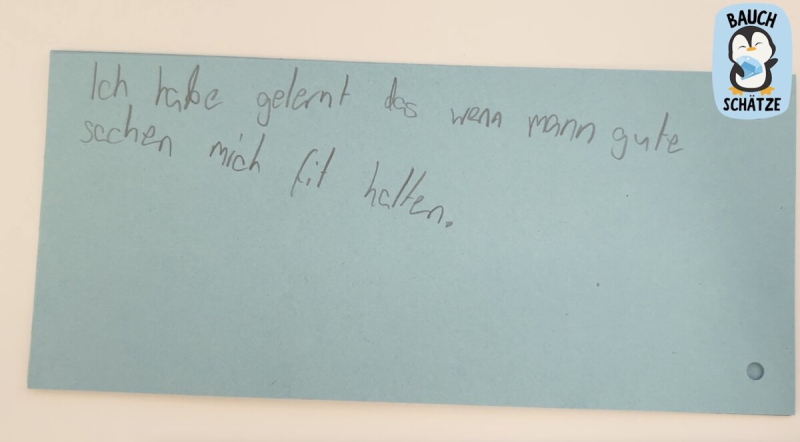 BAUCH
SCHÄTZE
Ich habe gelernt das wenn mann gute
sachen mich fit halten.